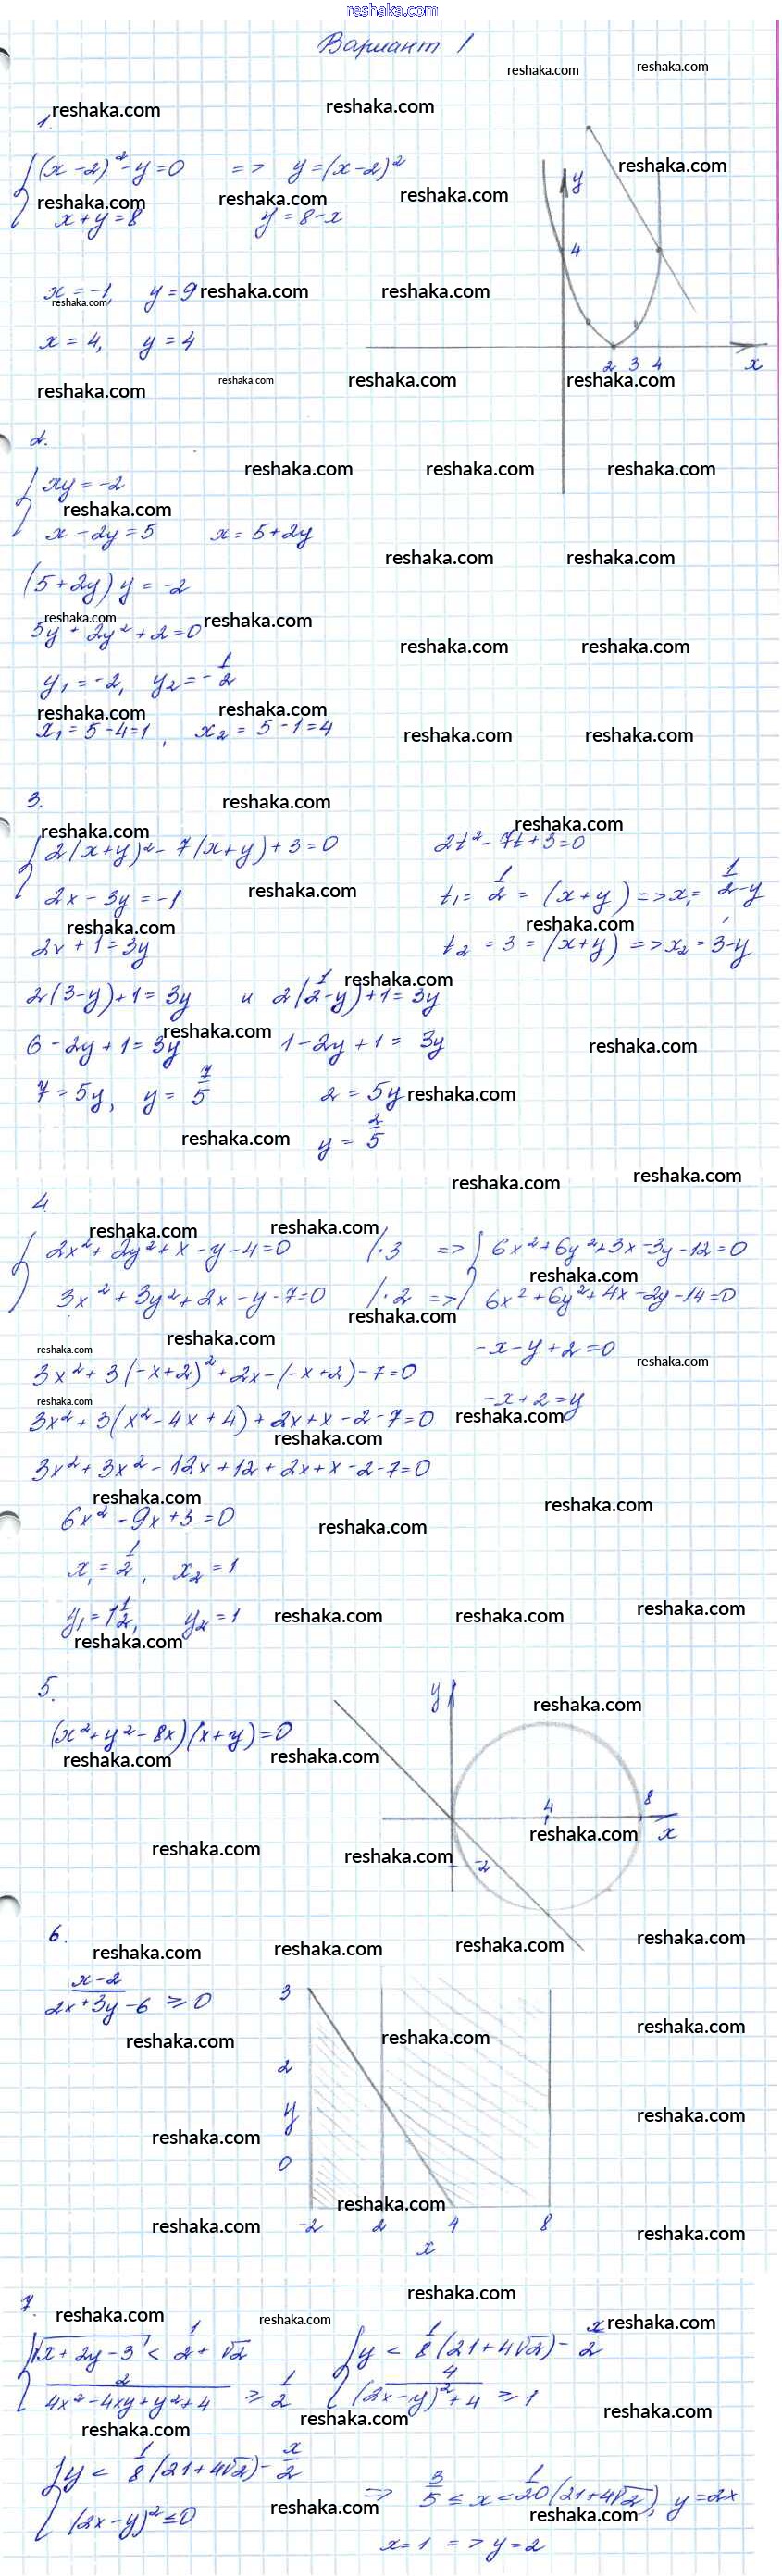 reshaka.com
Вариант 1
1.
(x-2)²-y=0 => y=(x-2)²
x+y=8 y=8-x
x=-1, y=9
x=4, y=4
y
4
2 3 4 x
2.
xy=-2
x-2y=5 x=5+2y
(5+2y)y=-2
5y+2y²+2=0
y₁=-2, y₂=-1/2
x₁=5-4=1, x₂=5-1=4
3.
2(x+y)²-7(x+y)+3=0 2t²-7t+3=0
2x-3y=-1 t₁=1/2=(x+y)=>x₁=1/2-y
2x+1=3y t₂=3=(x+y)=>x₂=3-y
2(3-y)+1=3y и 2(1/2-y)+1=3y
6-2y+1=3y 1-2y+1=3y
7=5y, y=7/5 2=5y
y=2/5
4
2x²+2y²+x-y-4=0 /·3 => 6x²+6y²+3x-3y-12=0
3x²+3y²+2x-y-7=0 /·2 => 6x²+6y²+4x-2y-14=0
-x-y+2=0
3x²+3(-x+2)²+2x-(-x+2)-7=0
-x+2=y
3x²+3(x²-4x+4)+2x+x-2-7=0
3x²+3x²-12x+12+2x+x-2-7=0
6x²-9x+3=0
x₁=1/2, x₂=1
y₁=1 1/2, y₂=1
5.
(x²+y²-8x)(x+y)=0
y
4 8
x
-2
6.
(x-2)/(2x+3y-6) ≥0
3
2
y
0
-2 2 4 8
x
7.
√(x+2y-3) < 1/2+√2 y < 1/8(21+4√2)-x/2
2/(4x²-4xy+y²+4) ≥ 1/2 4/((2x-y)²+4) ≥1
y < 1/8(21+4√2)-x/2
(2x-y)²≤0 => 3/5 ≤ x < 1/20(21+4√2), y=2x
x=1 => y=2